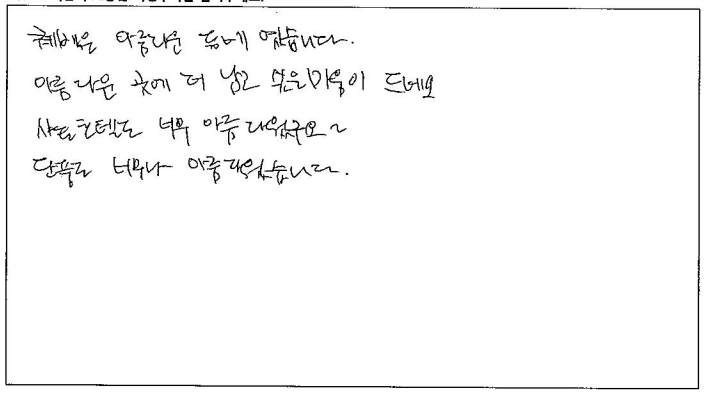 퀘백은 아름다운 동네 였습니다.
아름다운 곳에 더 남고 싶은 마음이 드네요
샤또호텔도 너무 아름다웠구요~
단풍도 너무나 아름다웠습니다.